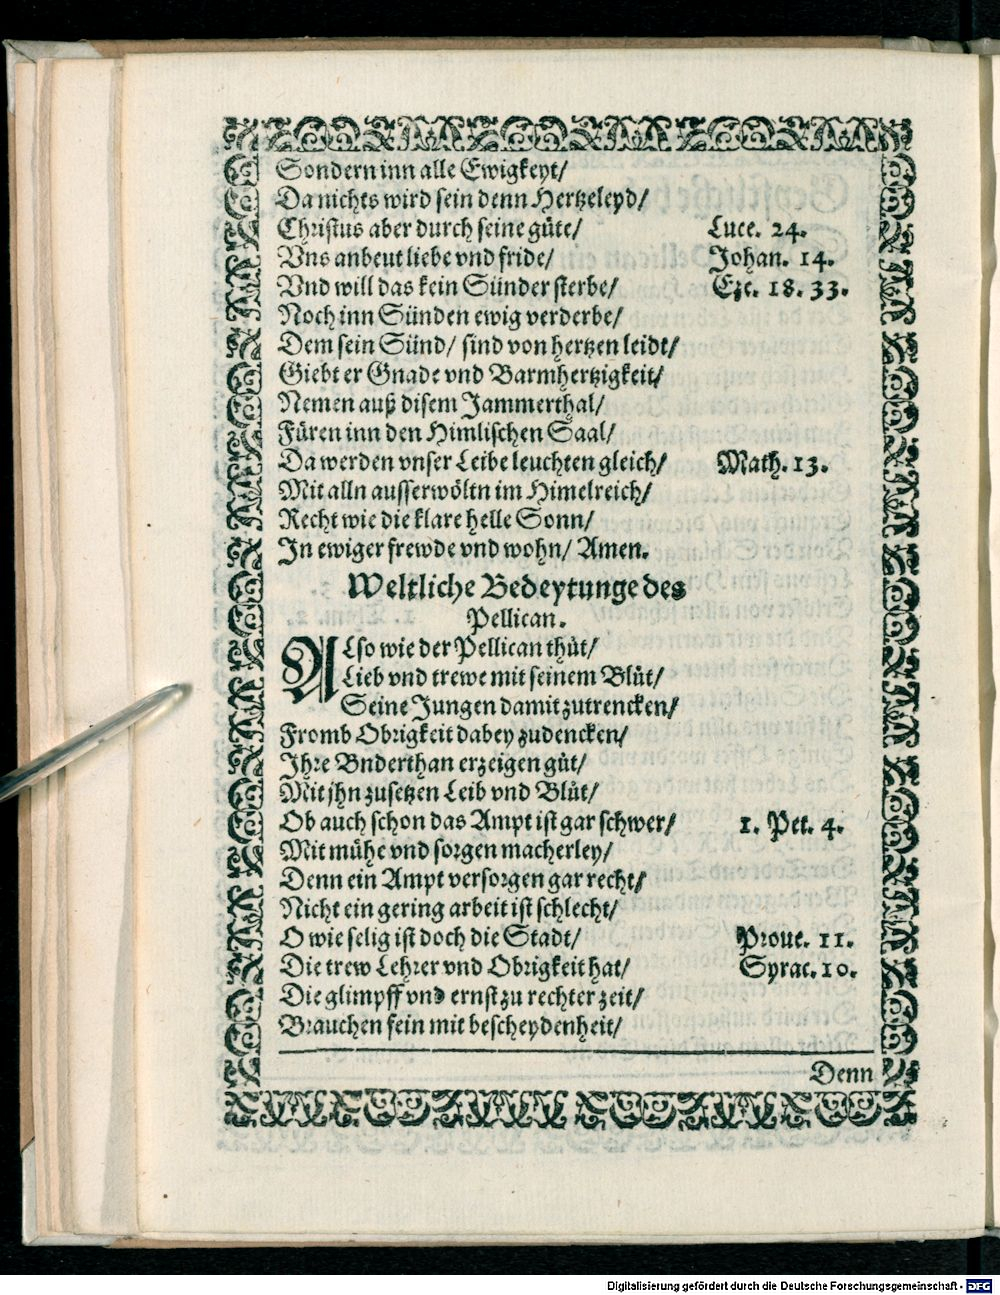 Sondern inn alle Ewigkeyt/
Da nichts wird sein denn Hertzeleyd/
Christus aber durch seine güte/ Luce. 24.
Vns anbeut liebe vnd fride/ Johan. 14.
Vnd will das kein Sünder sterbe/ Eze. 18. 33.
Noch inn Sünden ewig verderbe/
Dem sein Sünd/ sind von hertzen leidt/
Giebt er Gnade vnd Barmhertzigkeit/
Nemen auß disem Jammerthal/
Füren inn den Himlischen Saal/
Da werden vnser Leibe leuchten gleich/ Math. 13.
Mit alln ausserwöltn im Himelreich/
Recht wie die klare helle Sonn/
In ewiger frewde vnd wohn/ Amen.
Weltliche Bedeytunge des
Pellican.
ALso wie der Pellican thůt/
Lieb vnd trewe mit seinem Blůt/
Seine Jungen damit zutrencken/
Fromb Obrigkeit dabey zudencken/
Ihre Vnderthan erzeigen gůt/
Mit jhn zusetzen Leib vnd Blůt/
Ob auch schon das Ampt ist gar schwer/ 1. Pet. 4.
Mit mühe vnd sorgen macherley/
Denn ein Ampt versorgen gar recht/
Nicht ein gering arbeit ist schlecht/
O wie selig ist doch die Stadt/ Proue. 11.
Die trew Lehrer vnd Obrigkeit hat/ Syrac. 10.
Die glimpff vnd ernst zu rechter zeit/
Brauchen fein mit bescheydenheit/
Denn
Digitalisierung gefördert durch die Deutsche Forschungsgemeinschaft - DFG